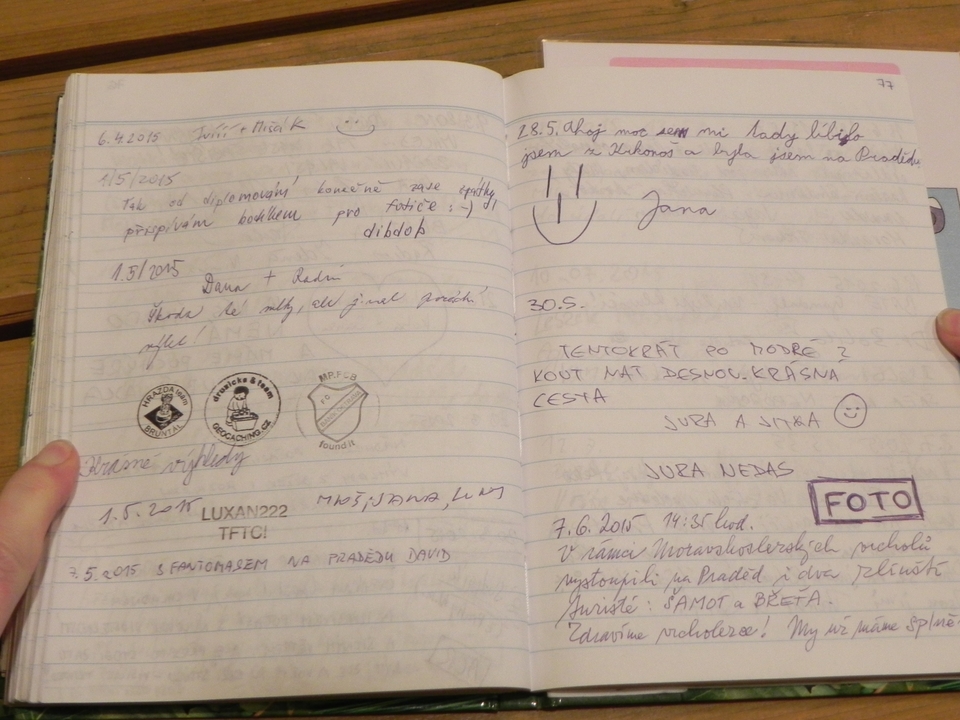 6.4.2015 Jiří + Mišák
1/5/2015
Tak od diplomování konečně zase zpátky,
přispívám bodíkem pro fotiče :-)
dibdob
1.5/2015
Dana + Radim
Škoda té mlhy, ale jinak
výlet!
HRAZDA team
BRUNTÁL
druzicka & team
GEOCACHING.CZ
MP.FCB
FC
found it
Krásné výhledy
1.5.2015 LUXAN222
TFTC!
7.5.2015 S FANTOMASEM NA PRADĚDU DAVID
77
28.5. Ahoj moc se mi tady líbilo
jsem z Krkonoš a byla jsem na Pradědu
Jana
30.5.
TENTOKRÁT PO MODRÉ Z
KOUT NAT DESNOU. KRÁSNÁ
CESTA
JURA A JITKA
JURA NEDAS
FOTO
7.6.2015 14:35 hod.
V rámci Moravskoslezských vrcholů
vystoupili na Praděd i dva zlínští
turisté: ŠAMOT a BŘEŤA.
Zdravíme vrcholezce! My už máme splně